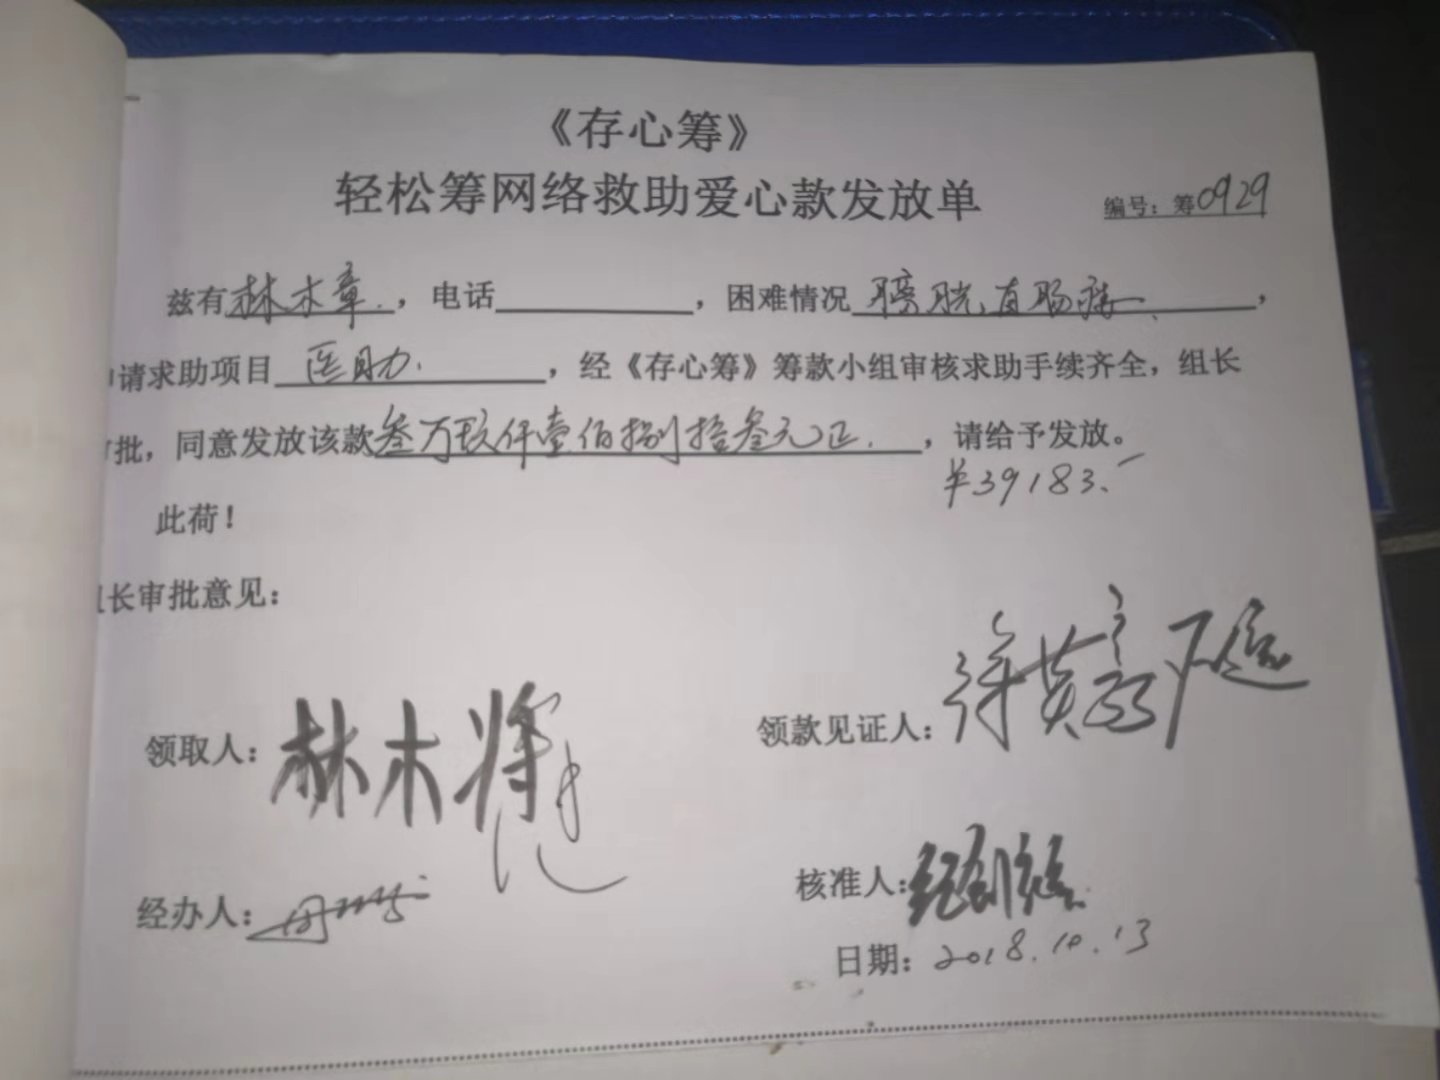 《存心筹》
轻松筹网络救助爱心款发放单
编号：筹0929
兹有林木章.，电话，困难情况膀胱直肠瘘，
请求助项目医助.，经《存心筹》筹款小组审核求助手续齐全，组长
批，同意发放该款叁万玖仟壹佰捌拾叁元正.，请给予发放。
¥39183.
此荷！
长审批意见：
领取人：林木
领款见证人：
经办人：
核准人：
日期：2018.10.13